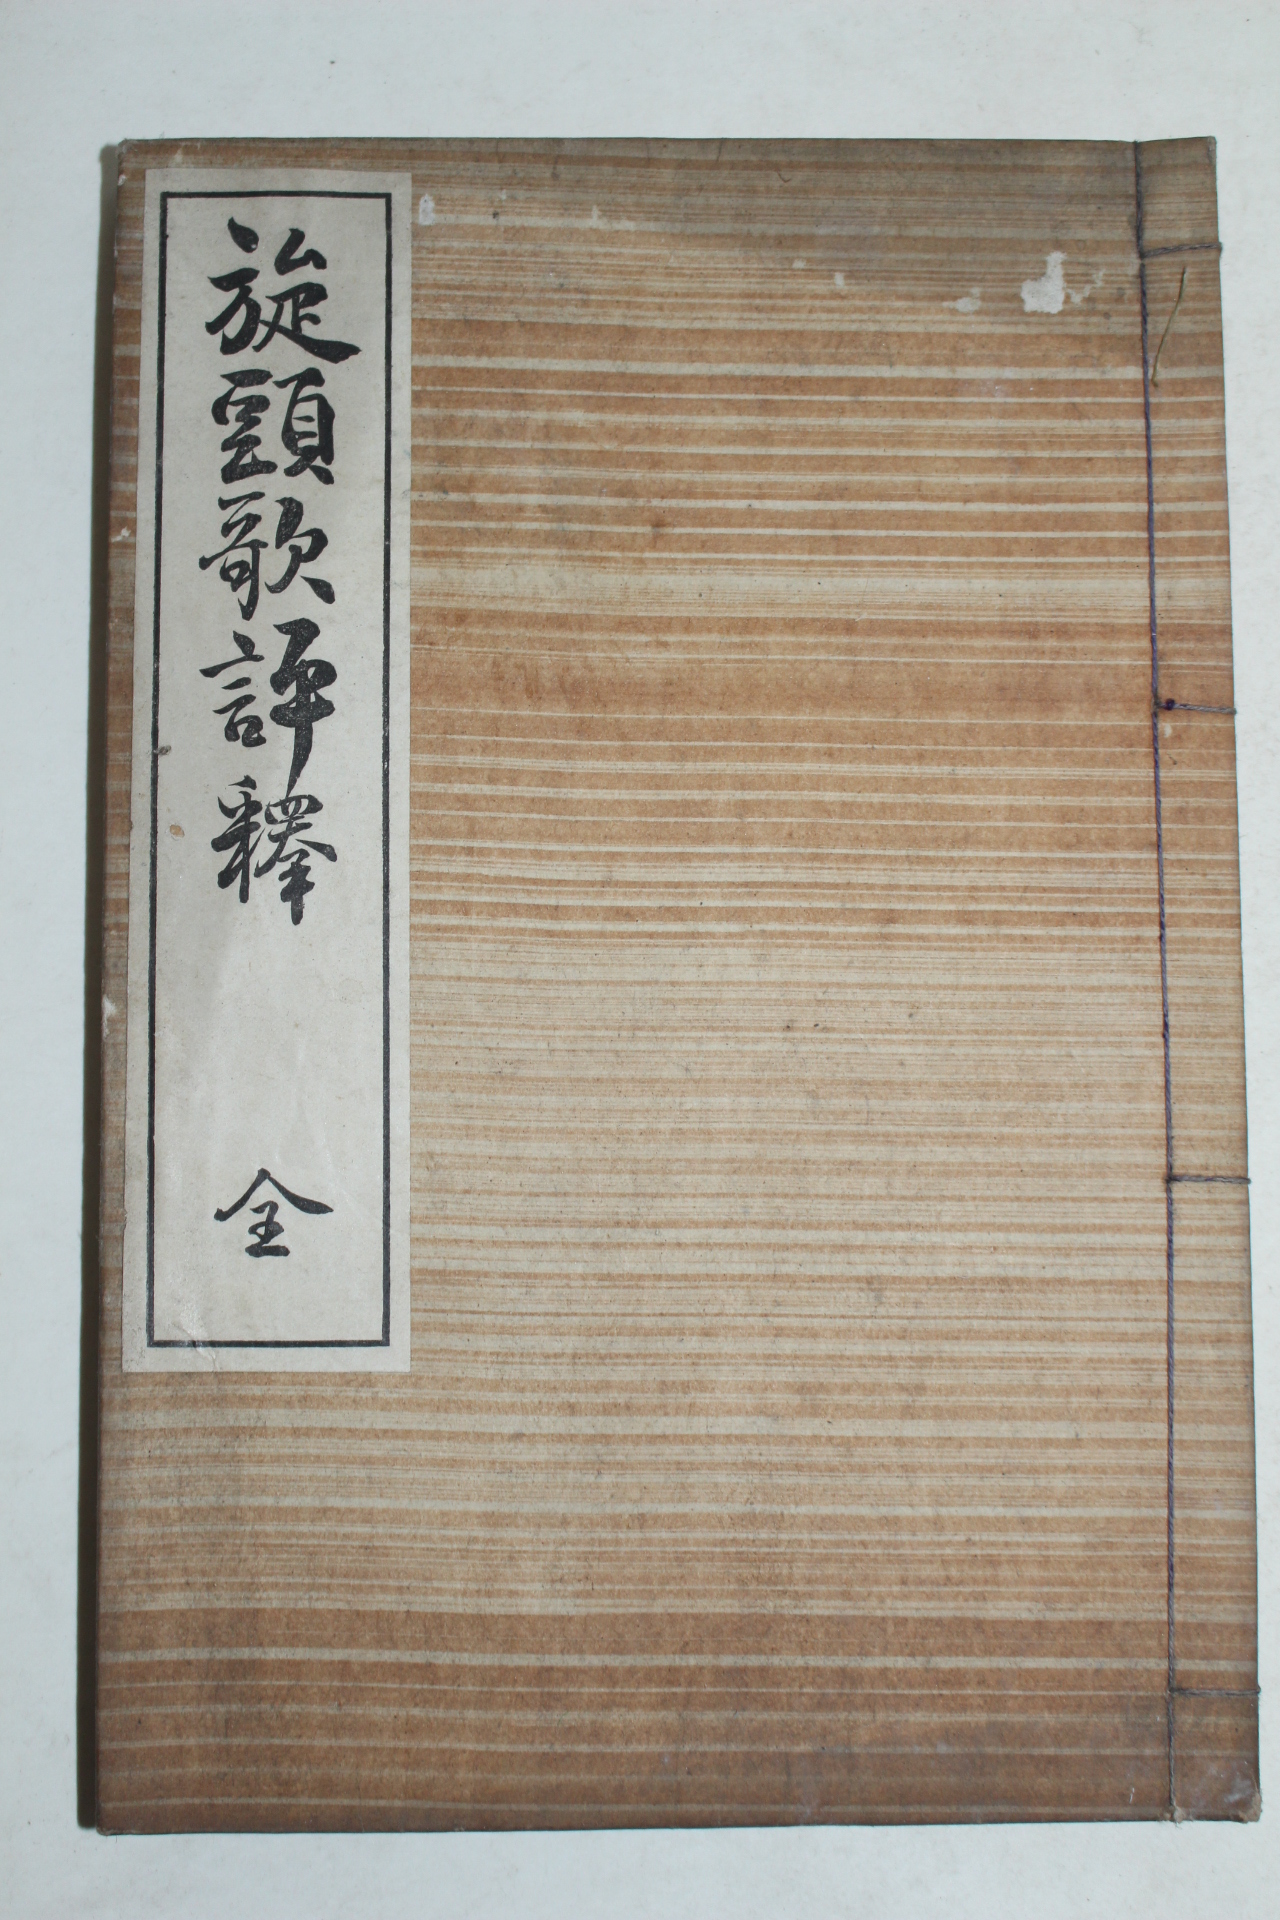 旋頭歌評釋 全